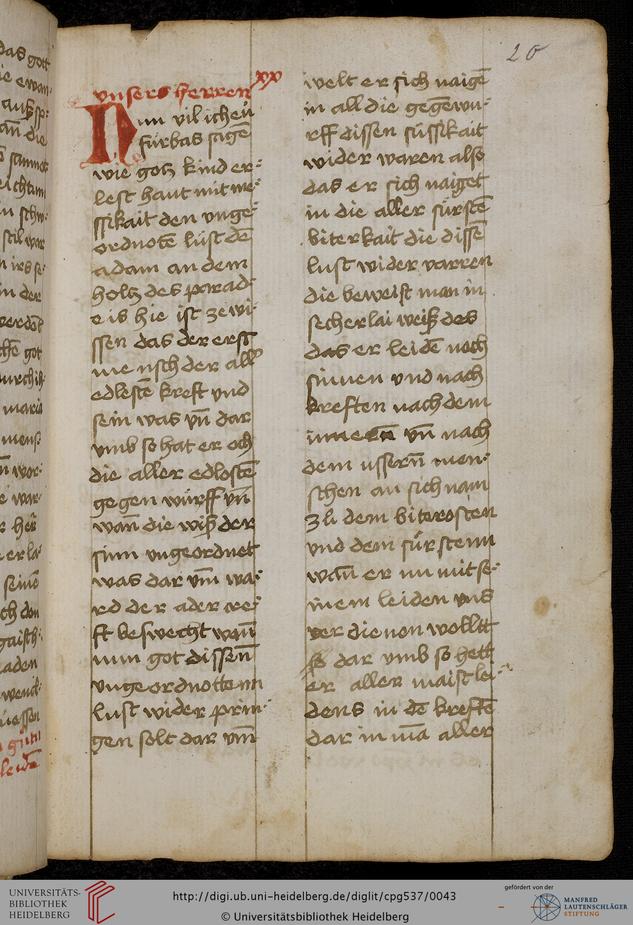 20
vnsers herren xx
Nun vil ich eu̓
fúrbas sagē
wie gotz kind er⸗
lest haut mit me⸗
ssikait den vnge⸗
ordnotē lust dē
adam an dem
holtz des parad⸗
eis hie ist ze wi⸗
ssen das der erst
mensch der all
edlestē kreft vnd
sein was vn̄ dar
vmb so hat er och
die aller edlostē
gegen wúrff vn̄
wan̄ die wiß der
sinn vngeordnet
was dar vm̄ wa⸗
rd der ader
ft beswecht wan̄
nun got dissen̄
vngeordnotten
lust wider prin⸗
gen solt dar vm̄
welt er sich naigē
in all die gegewu⸗
rff dissen sússikait
wider waren also
das er sich naiget
in die aller súrstē
biterkait die dissē
lust wider varren
die beweist man in
secherlai weiß des
das er leidē noch
sinnen vnd nach
kreften nach dem
innern vn̄ nach
dem ussern̄ men⸗
schen an sich nam
zů dem biterosten
vnd dem súrsten
wan̄ er nu mit se⸗
inem leiden vns
ver dienen wollt
so dar vmb so hett
er aller maist lei⸗
dens in dē kreftē
dar in mā aller
UNIVERSITÄTS-
BIBLIOTHEK
HEIDELBERG
http://digi.ub.uni-heidelberg.de/diglit/cpg537/0043
© Universitätsbibliothek Heidelberg
gefördert von der
MANFRED
LAUTENSCHLÄGER
STIFTUNG